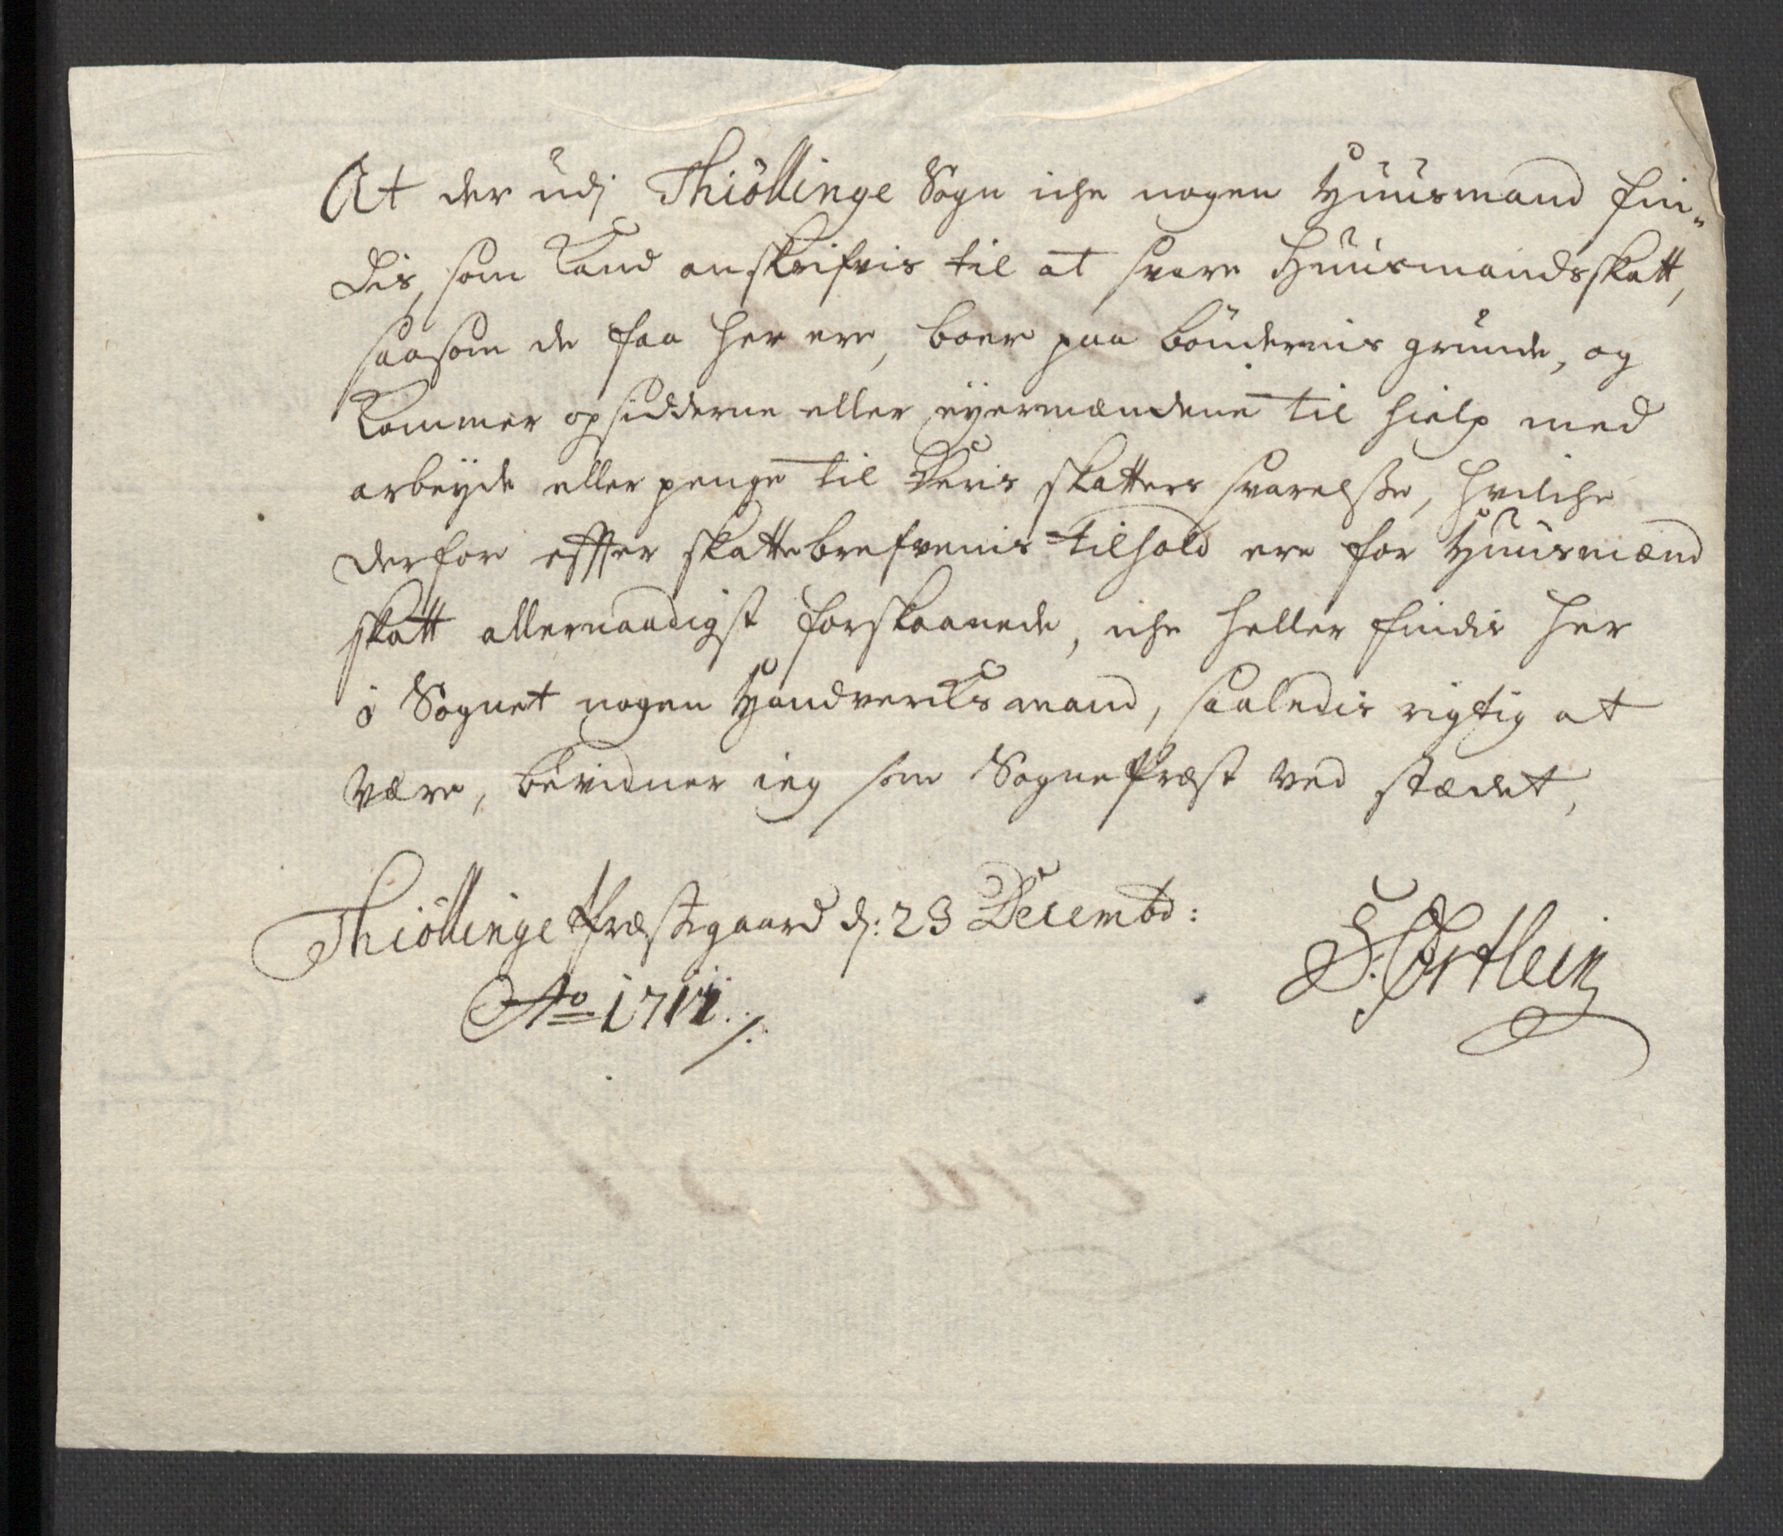 At der udj Thiöllinge Sogn iche nogen Huusmand fin„
dis, som kand anskrifvis til at svare Huusmandsskatt,
saasom de faa her ere, boer paa böndernis grunde, og
kommer opsidderne eller eÿermændene til hielp med
arbeÿde eller penge til deris skatters svarelsse, hvilche
derfor effter skattebrefvenis tilhold ere for Huusmænd
skatt allernaadigst forskaanede, iche heller findis her
i Sognet nogen Handvercksmand, saaledis rigtig at
være, bevidner ieg som Sognepræst ved stædet,
Thiöllinge Præstegaard dj: 23 Decembr:
Ao 1711 ./.
S. Ortlein